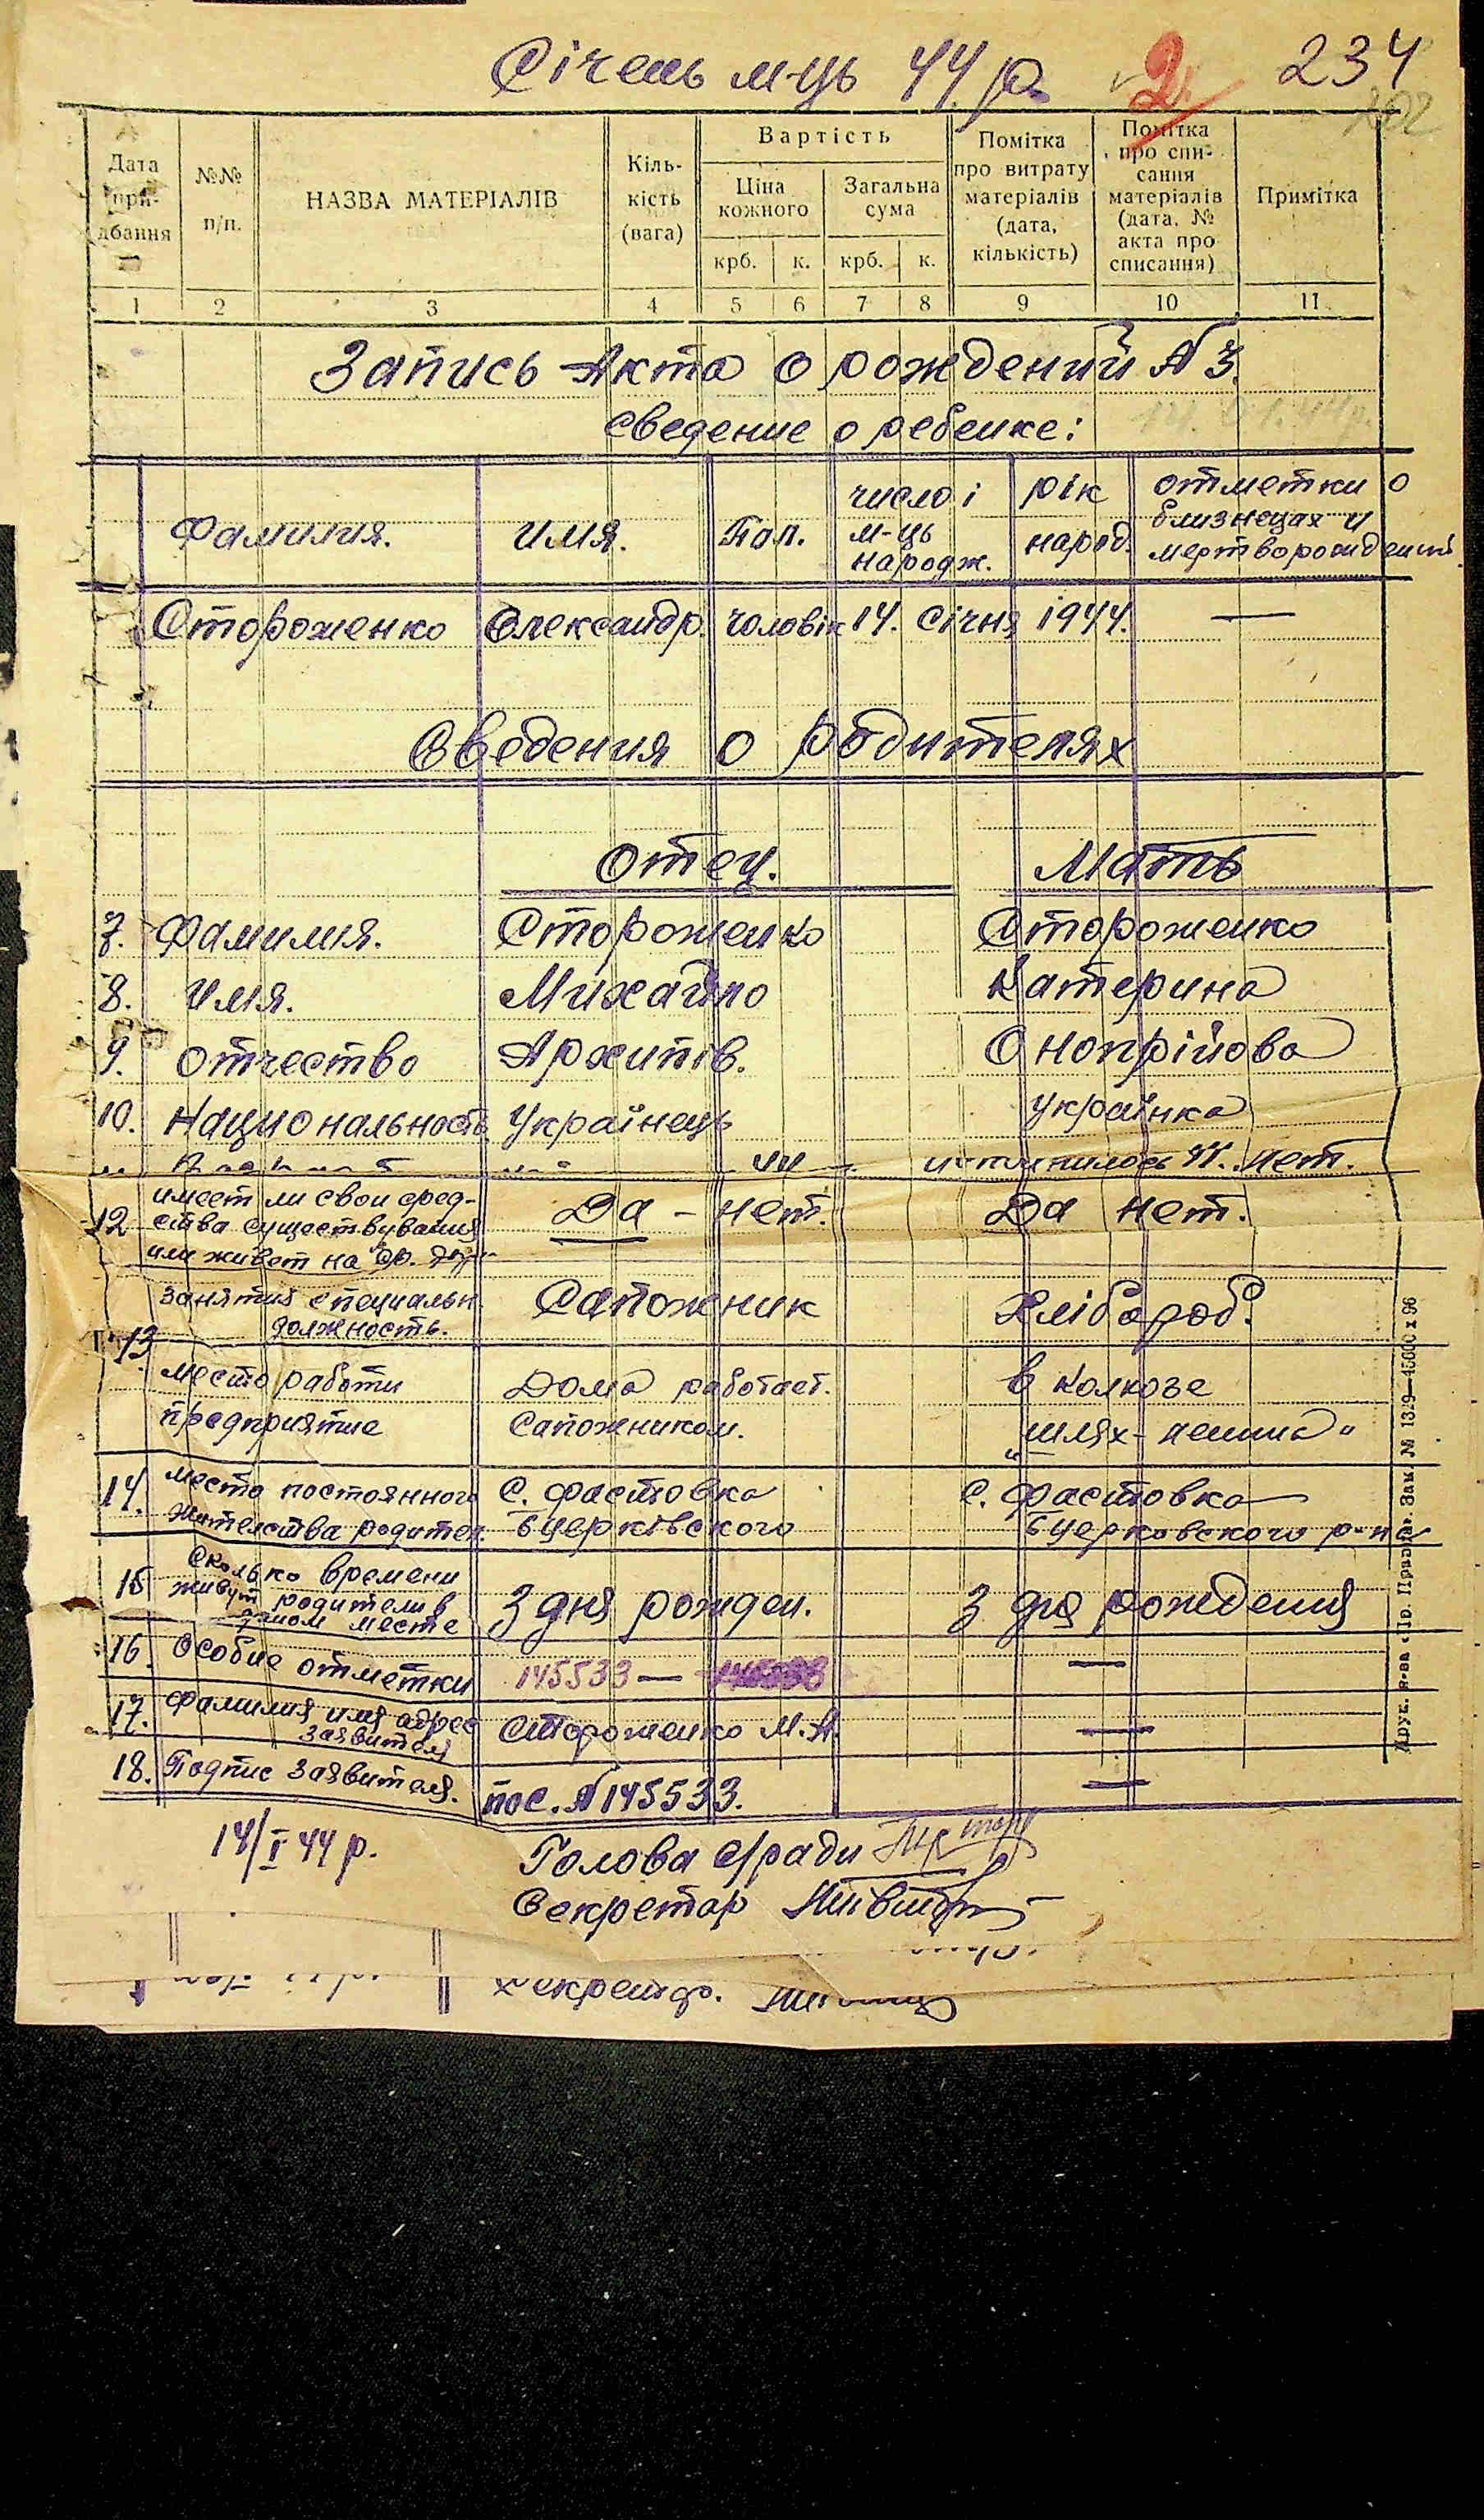 Січень м-ць 44 р. 2 234
202
Дата при-дбання №№ п/п. НАЗВА МАТЕРІАЛІВ Кіль-кість (вага) Вартість Помітка про витрату матеріалів (дата, кількість) Помітка про спи-сання матеріалів (дата, № акта про списання) Примітка
Ціна кожного Загальна сума
крб. к. крб. к.
1 2 3 4 5 6 7 8 9 10 11
Запись Акта о рождений № 3.
Сведение о ребенке:
Фамилия. Имя. Пол. число і м-ць народж. рік народ. отметки о близнецах и мертворождений
Стороженко Олександр. чоловік 14. Січня 1944. —
Сведения о родителях
Отец. Мать
7. Фамилия. Стороженко Стороженко
8. Имя. Михайло Катерина
9. Отчество Архипів. Онопрійова
10. Национальность Українець Українка
исполнилось лет.
12 имеет ли свои сред-
ства существувания Да – нет. Да нет.
или живет на ср.
13. Занятия специальн. Сапожник Хлібороб.
должность.
место работи Дома работает. в колхозе
предприятие Сапожником. „шлях-Ленина"
14. место постоянного С. Фастовка С. Фастовка
жителства родител. Бцерківского Бцерковского р-на
15 Сколько времени
живут родители в З дня рожден. З дня рождения
даном месте
16. Особие отметки 145533 — —
17. Фамилия имя адрес Стороженко М.А. —
заявителя
18. Подпис Заявителя. пос. № 145533. —
14/I 44 р. Голова с/ради
Секретар
Секретар.
Друк. в-ва „Пр. Правда". Зам. № 1319—45000 х 96